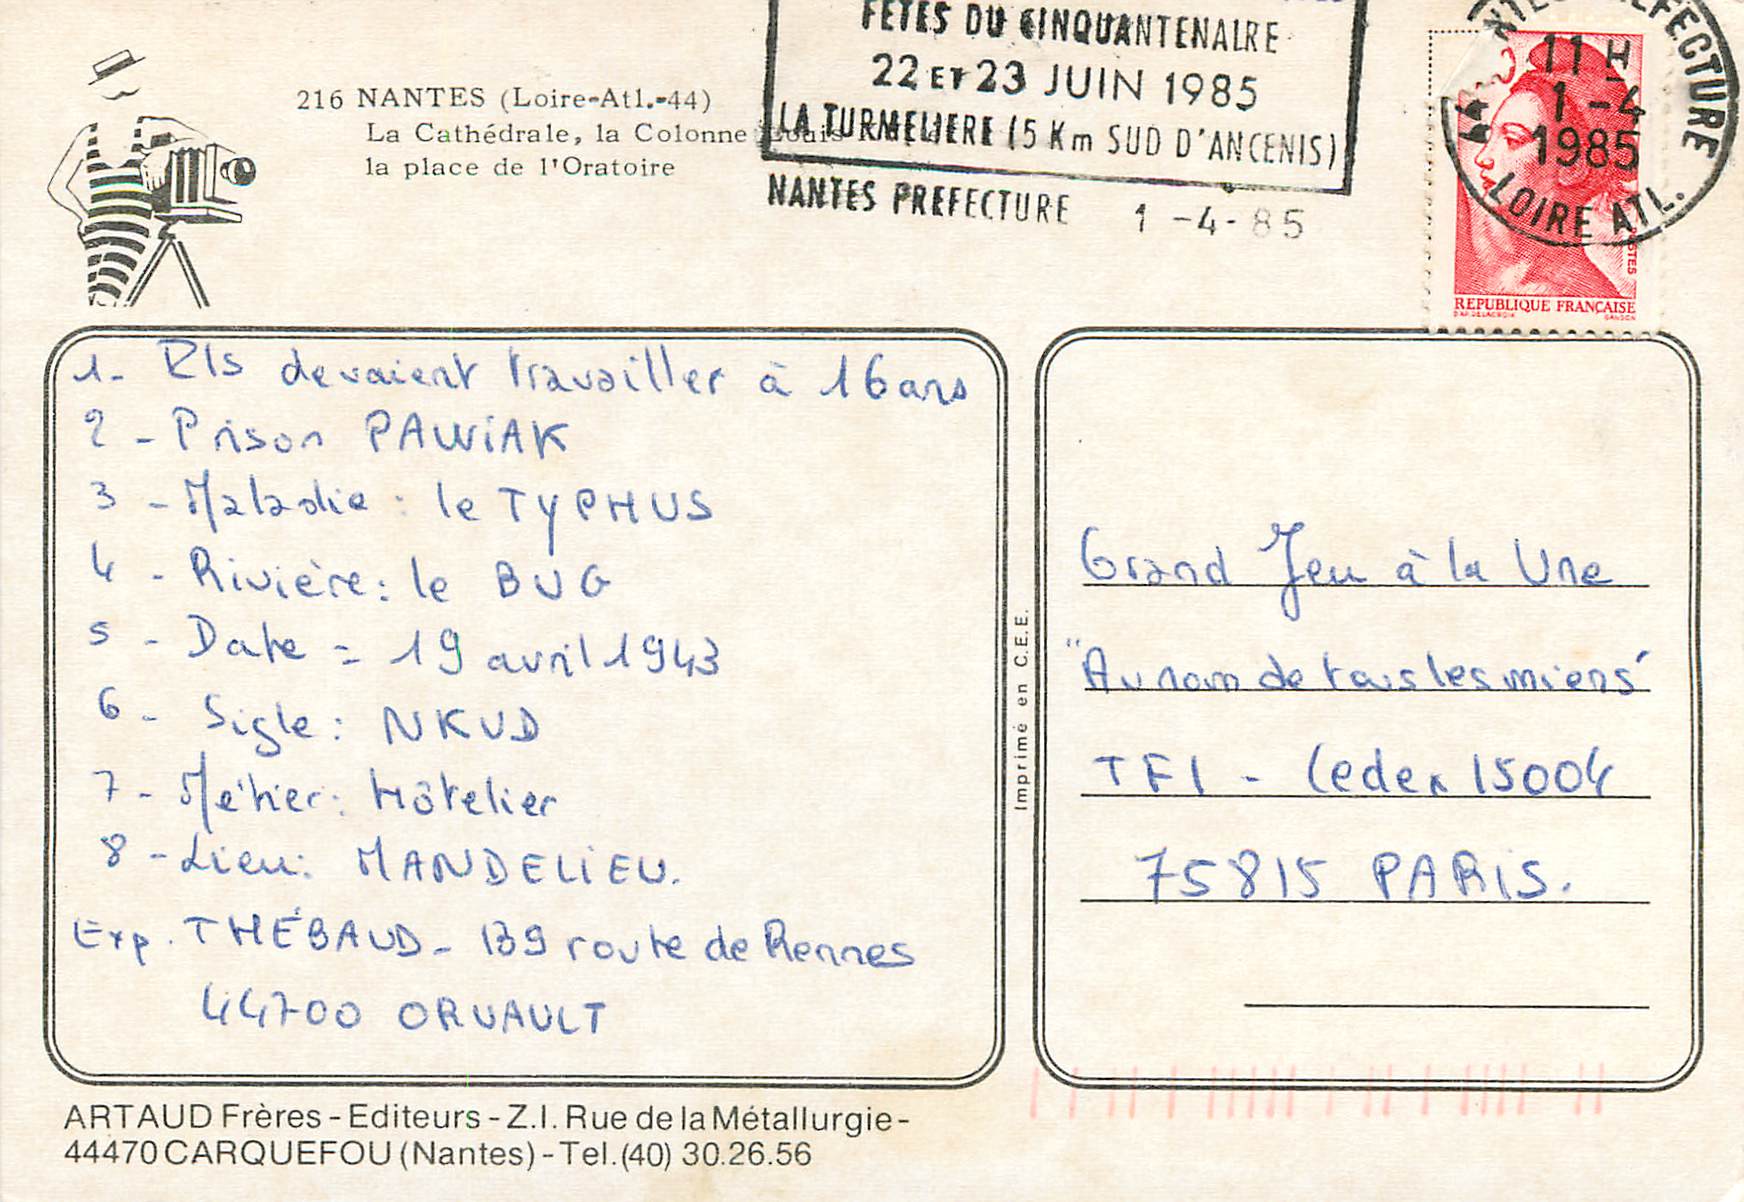 FETES DU CINQUANTENAIRE
22 ET 23 JUIN 1985
LA TURMELIERE (5 Km SUD D'ANCENIS)
NANTES PREFECTURE 1 -4- 85
44 NANTES PREFECTURE
11 H
1 -4
1985
LOIRE ATL.
POSTES
REPUBLIQUE FRANÇAISE
D'AP. DELACROIX GANDON
216 NANTES (Loire-Atl.-44)
La Cathédrale, la Colonne Louis
la place de l'Oratoire
1- Ils devaient travailler à 16 ans
2 - Prison PAWIAK
3 - Maladie : le TYPHUS
4 - Rivière : le BUG
5 - Date = 19 avril 1943
6 - Sigle : NKVD
7 - Métier : Hôtelier
8 - Lieu : MANDELIEU.
Exp. THÉBAUD - 139 route de Rennes
44700 ORVAULT
Imprimé en C.E.E.
Grand Jeu à la Une
"Au nom de tous les miens"
TF1 - Cedex 15004
75815 PARIS.
ARTAUD Frères - Editeurs - Z.I. Rue de la Métallurgie -
44470 CARQUEFOU (Nantes) - Tel. (40) 30.26.56